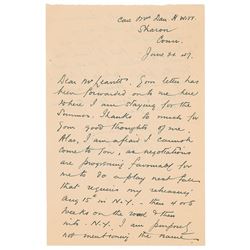 Care Mrs Dan H Witt.
Sharon
Conn.
June 21. 47.
Dear Mr Leavitt. Your letter has
been forwarded onto me here
where I am staying for the
Summer. Thanks so much for
your good thoughts of me.
Alas, I am afraid I cannot
come to you, as negotiations
are progressing favourably for
me to do a play next fall
that requires my rehearsing
Aug 15th in N.Y. - then 4 or 5
weeks on the road & then
into N.Y. I am purposely
not mentioning the name